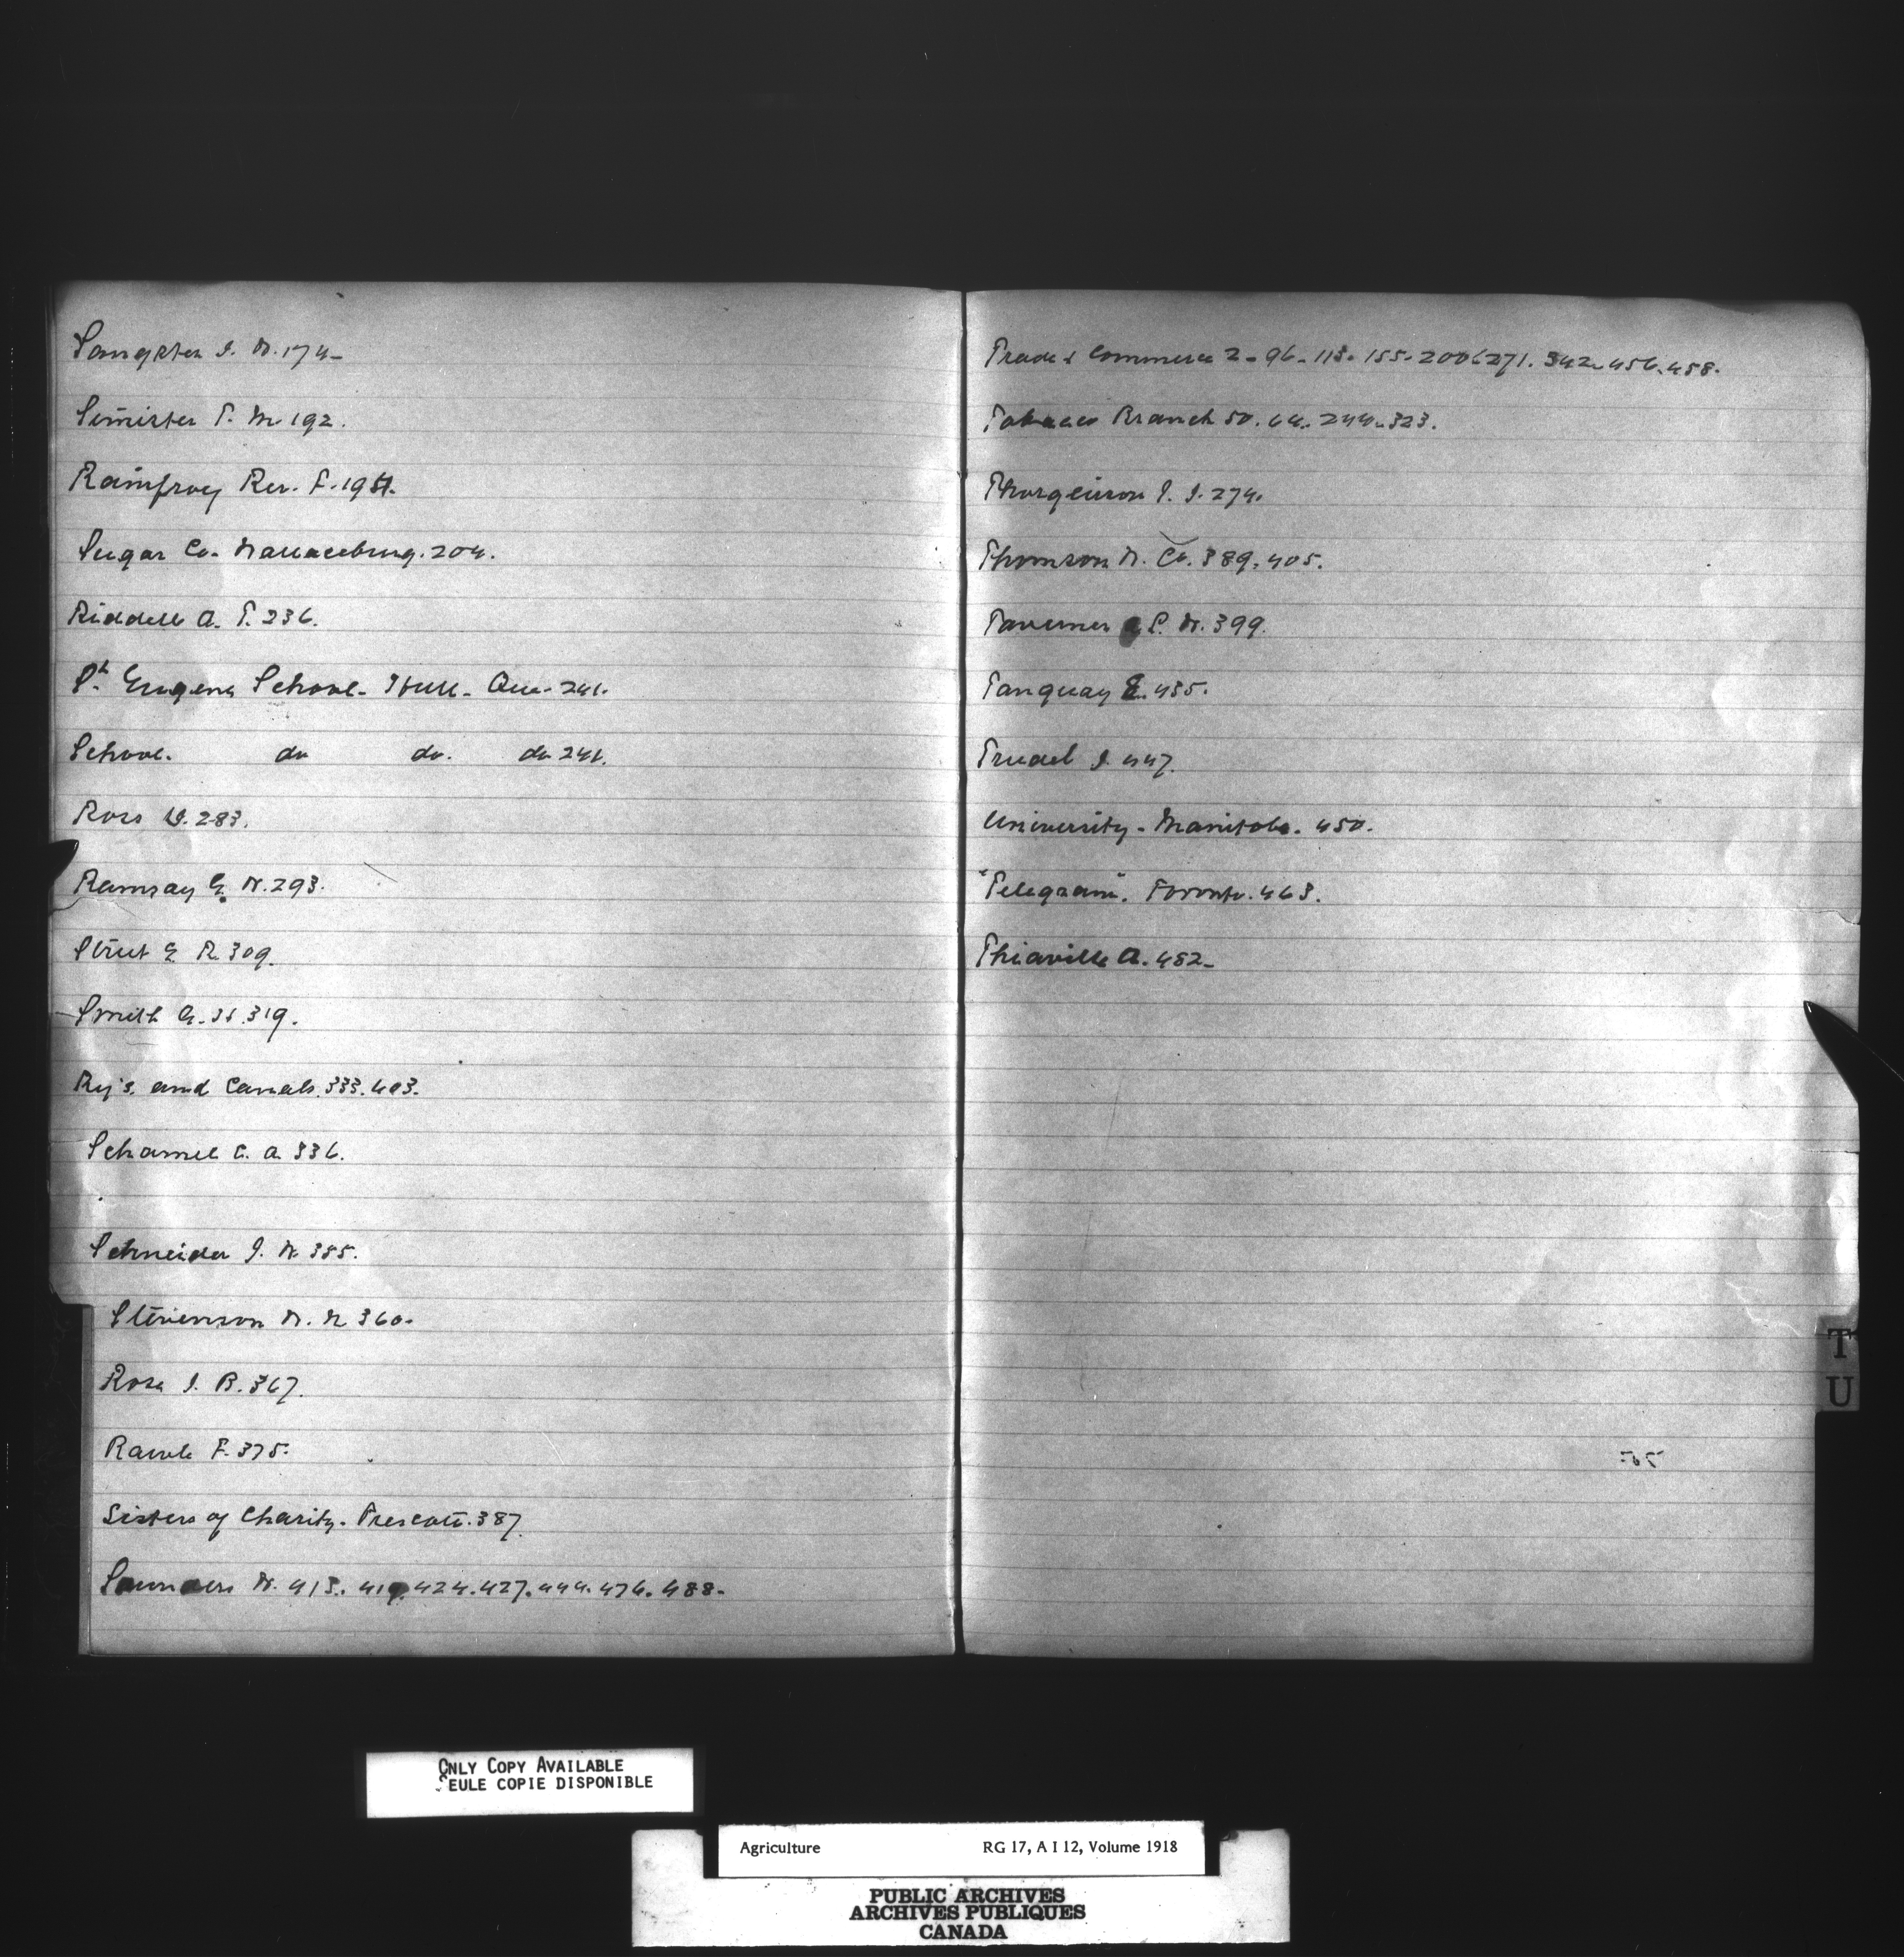 Sangster J. W. 174-
Simister T. M. 192.
Rainfroy Rev. F. 197.
Sugar Co. Wallaceburg. 204.
Riddell A. T. 236.
St. Eugene School - Hull - Que - 241.
School. do do. do 241.
Ross W. 283.
Ramsay G. W. 293.
Strut E R. 309.
Smith G. H. 319.
Ry's. and Canals. 333. 403.
Schamel C. A 336.
Schneider J. W 355.
Stevenson W. N 360.
Rose J. B. 367.
Rawle F. 375.
Sisters of Charity. Prescott. 387.
Saunders W. 415. 419. 424. 427. 444. 476. 488.
Trade & Commerce 2 - 96 - 113. 155. 200 & 271. 342. 456. 458.
Tobacco Branch 50. 64. 244. 323.
Thorgeirson J. J. 274.
Thomson W. Co. 389. 405.
Taverner P. W. 399.
Tanquay E. 435.
Trudel J. 447.
University - Manitoba. 450.
"Telegram". Toronto. 463.
Thiaville A. 482-
T
U
ONLY COPY AVAILABLE
SEULE COPIE DISPONIBLE
Agriculture RG 17, A I 12, Volume 1918
PUBLIC ARCHIVES
ARCHIVES PUBLIQUES
CANADA